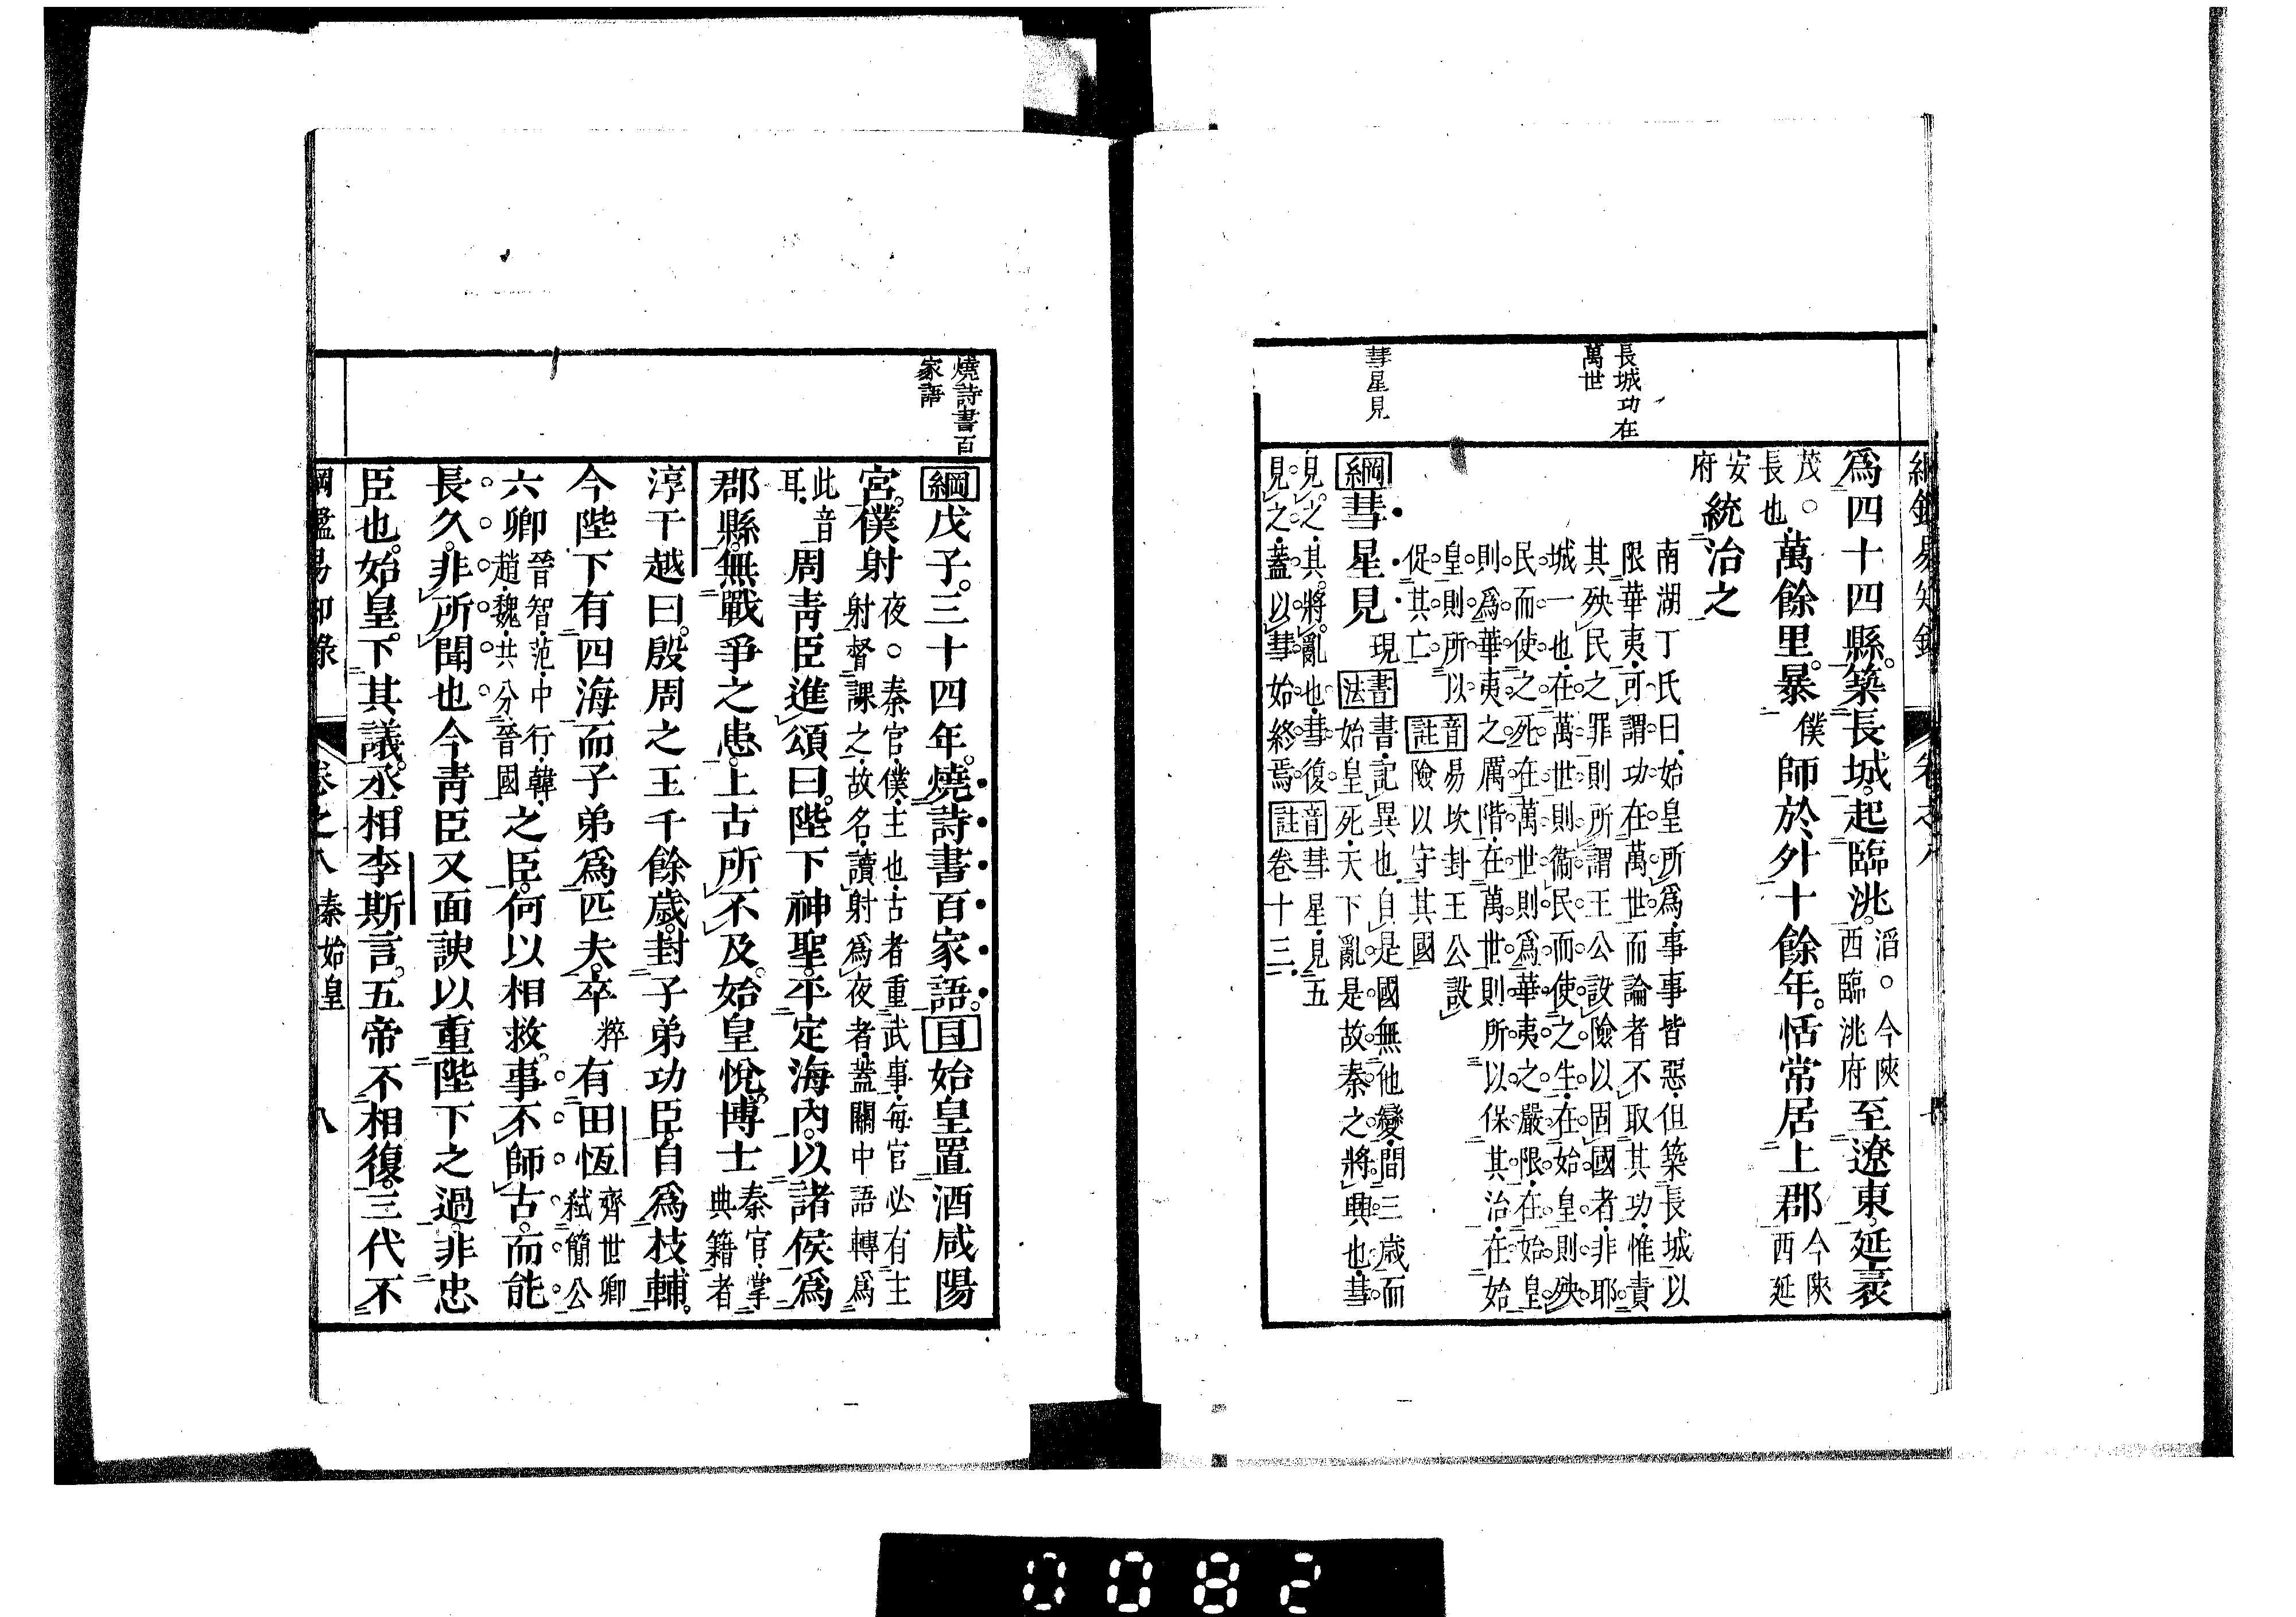 綱鑑易知錄 卷之八
長城功在
萬世
彗星見
爲四十四縣。築長城。起臨洮。滔○今陝西臨洮府至遼東。延袤
茂○長也.萬餘里。暴僕師於外十餘年。恬常居上郡今陝西延
安府統治之
南湖丁氏曰.始皇所爲.事事皆惡.但築長城以
限華夷.可謂功在萬世.而論者不取其功.惟責
其殃民之罪.則所謂王公設險以固國者.非耶.
城一也.在萬世則衞民而使之生.在始皇則殃
民而使之死.在萬世則爲華夷之嚴限.在始皇
則爲華夷之厲階.在萬世則所以保其治.在始
皇則所以促其亡.音註易坎卦王公設險以守其國
綱彗星見現書法書.記異也.自是國無他變.間三歲而始皇死.天下亂.是故秦之將興也.彗
見之.其將亂也.彗復見之.蓋以彗始終焉.音註彗星見五卷十三.
燒詩書百
家語
綱戊子。三十四年。燒詩書百家語。目始皇置酒咸陽
宮。僕射夜○秦官.僕.主也.古者重武事.每官必有主射督課之.故名.讀射爲夜者.蓋關中語轉爲
此音耳.周青臣進頌曰。陛下神聖。平定海內。以諸侯爲
郡縣。無戰爭之患。上古所不及。始皇悅。博士秦官.掌典籍者
淳于越曰。殷周之王千餘歲。封子弟功臣。自爲枝輔。
今陛下有四海。而子弟爲匹夫。卒粹有田恆齊世卿弒簡公
六卿晉智.范.中行.韓.趙.魏.共分晉國之臣。何以相救。事不師古。而能
長久。非所聞也。今青臣又面諛以重陛下之過。非忠
臣也。始皇下其議。丞相李斯言。五帝不相復。三代不
綱鑑易知錄 卷之八 秦始皇 八
0082